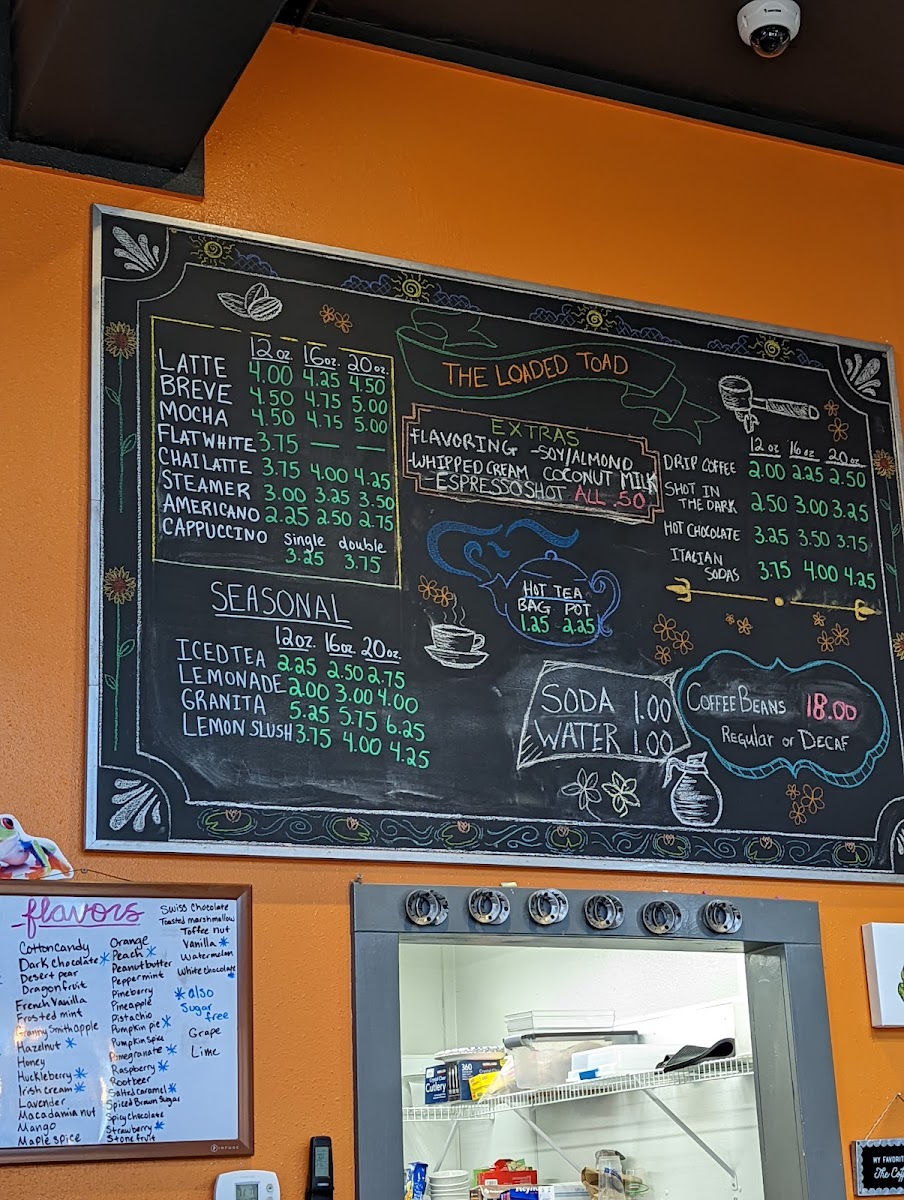 12oz. 16oz. 20oz.
LATTE 4.00 4.25 4.50
BREVE 4.50 4.75 5.00
MOCHA 4.50 4.75 5.00
FLAT WHITE 3.75 — —
CHAI LATTE 3.75 4.00 4.25
STEAMER 3.00 3.25 3.50
AMERICANO 2.25 2.50 2.75
CAPPUCCINO single double
3.25 3.75
SEASONAL
12oz. 16oz. 20oz.
ICED TEA 2.25 2.50 2.75
LEMONADE 2.00 3.00 4.00
GRANITA 5.25 5.75 6.25
LEMON SLUSH 3.75 4.00 4.25
THE LOADED TOAD
EXTRAS
FLAVORING -SOY/ALMOND
WHIPPED CREAM COCONUT MILK
-ESPRESSO SHOT ALL .50
HOT TEA
BAG POT
1.25 2.25
SODA 1.00
WATER 1.00
12oz 16oz. 20oz.
DRIP COFFEE 2.00 2.25 2.50
SHOT IN
THE DARK 2.50 3.00 3.25
HOT CHOCOLATE 3.25 3.50 3.75
ITALIAN
SODAS 3.75 4.00 4.25
COFFEE BEANS 18.00
REGULAR OR DECAF
flavors
Cotton Candy
Dark chocolate *
Desert pear
Dragonfruit
French Vanilla
Frosted mint
Granny Smith apple
Hazelnut *
Honey
Huckleberry *
Irish cream *
Lavender
Macadamia nut
Mango
Maple spice
Orange
Peach *
Peanut butter
Peppermint
Pineberry
Pineapple
Pistachio
Pumpkin pie *
Pumpkin spice
Pomegranate *
Raspberry *
Rootbeer
Salted caramel *
Spiced Brown Sugar
Spicy Chocolate
Strawberry *
Stone fruit
Swiss Chocolate
Toasted marshmallow
Toffee nut
Vanilla *
Watermelon
White chocolate *
* also
Sugar
free
Grape
Lime
Cutlery
360
MY FAVORIT